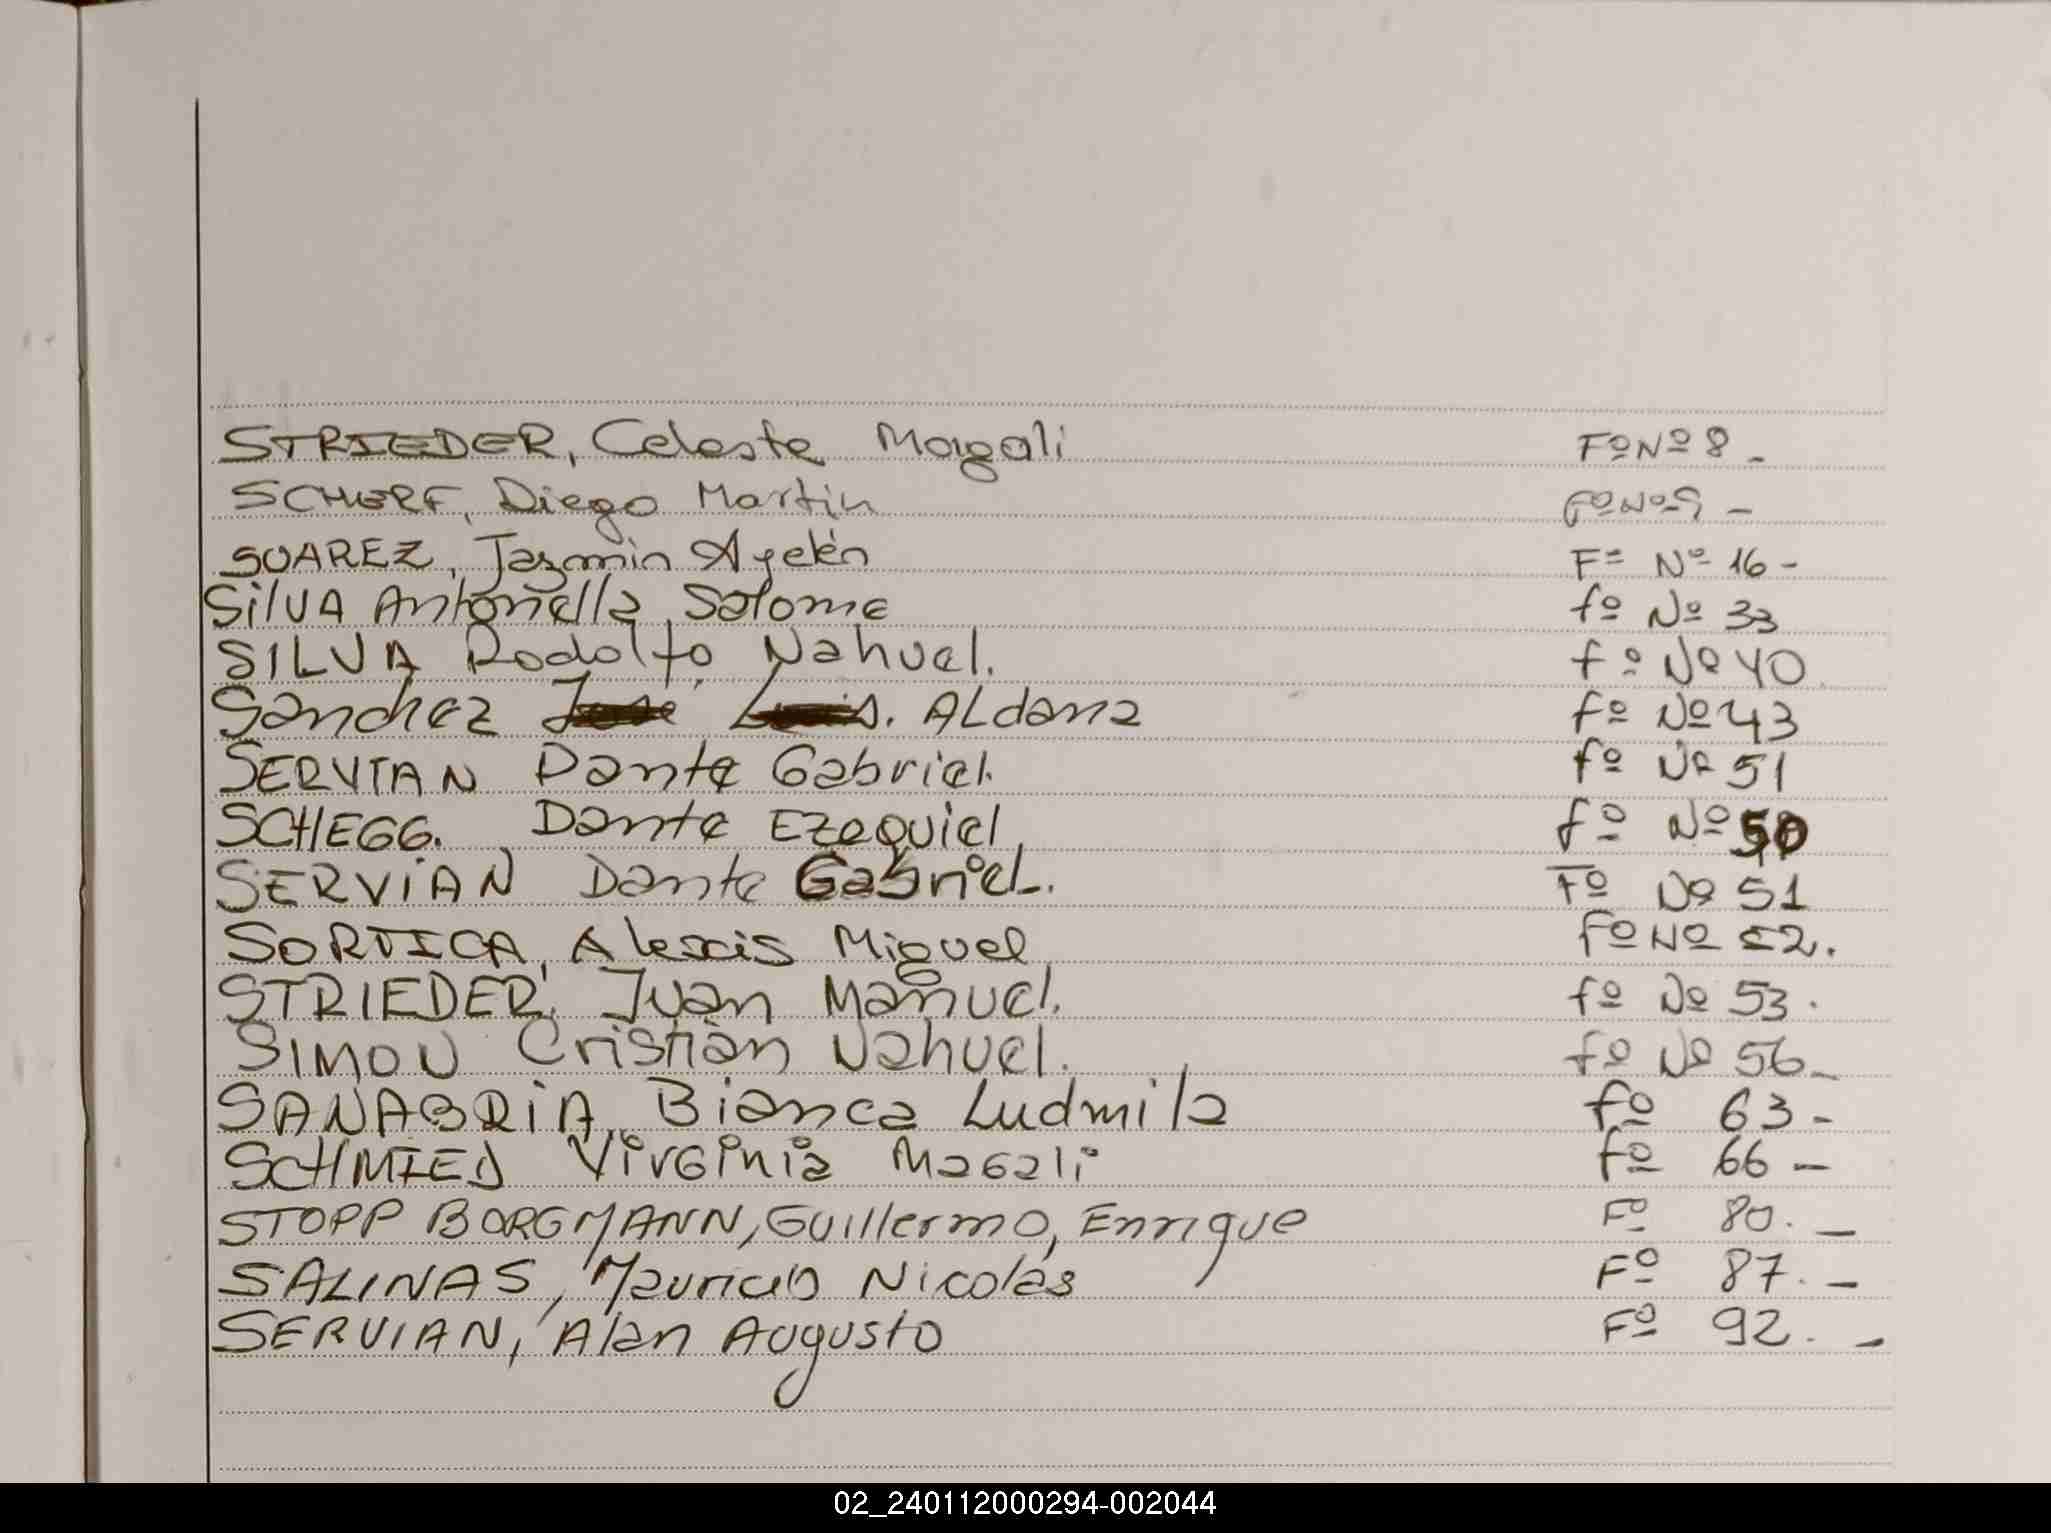 STRIEDER, Celeste Magali Fº Nº 8 -
SCHERF, Diego Martin Fº Nº 9 -
SUAREZ, Jazmin Ayelén Fº Nº 16 -
SilVA Antonella Salome fº Nº 33
SILVA Rodolfo Nahuel. fº Nº 40
Sanchez Jose Luis. ALdana fº Nº 43
SERVIAN Dante Gabriel. fº Nº 51
SCHEGG. Dante Ezequiel fº Nº 50
SERViAN Dante Gabriel. Fº Nº 51
SORTICA, Alexis Miguel Fº Nº 52.
STRIEDER, Juan Manuel. fº Nº 53.
SIMON Cristian Nahuel. fº Nº 56 -
SANABRiA, Bianca Ludmila fº 63 -
SCHMIED VirGinia MaGali fº 66 -
STOPP BORGMANN, Guillermo, Enrique Fº 80. -
SALINAS, Mauricio Nicolás Fº 87. -
SERVIAN, Alan Augusto Fº 92. -
02_240112000294-002044